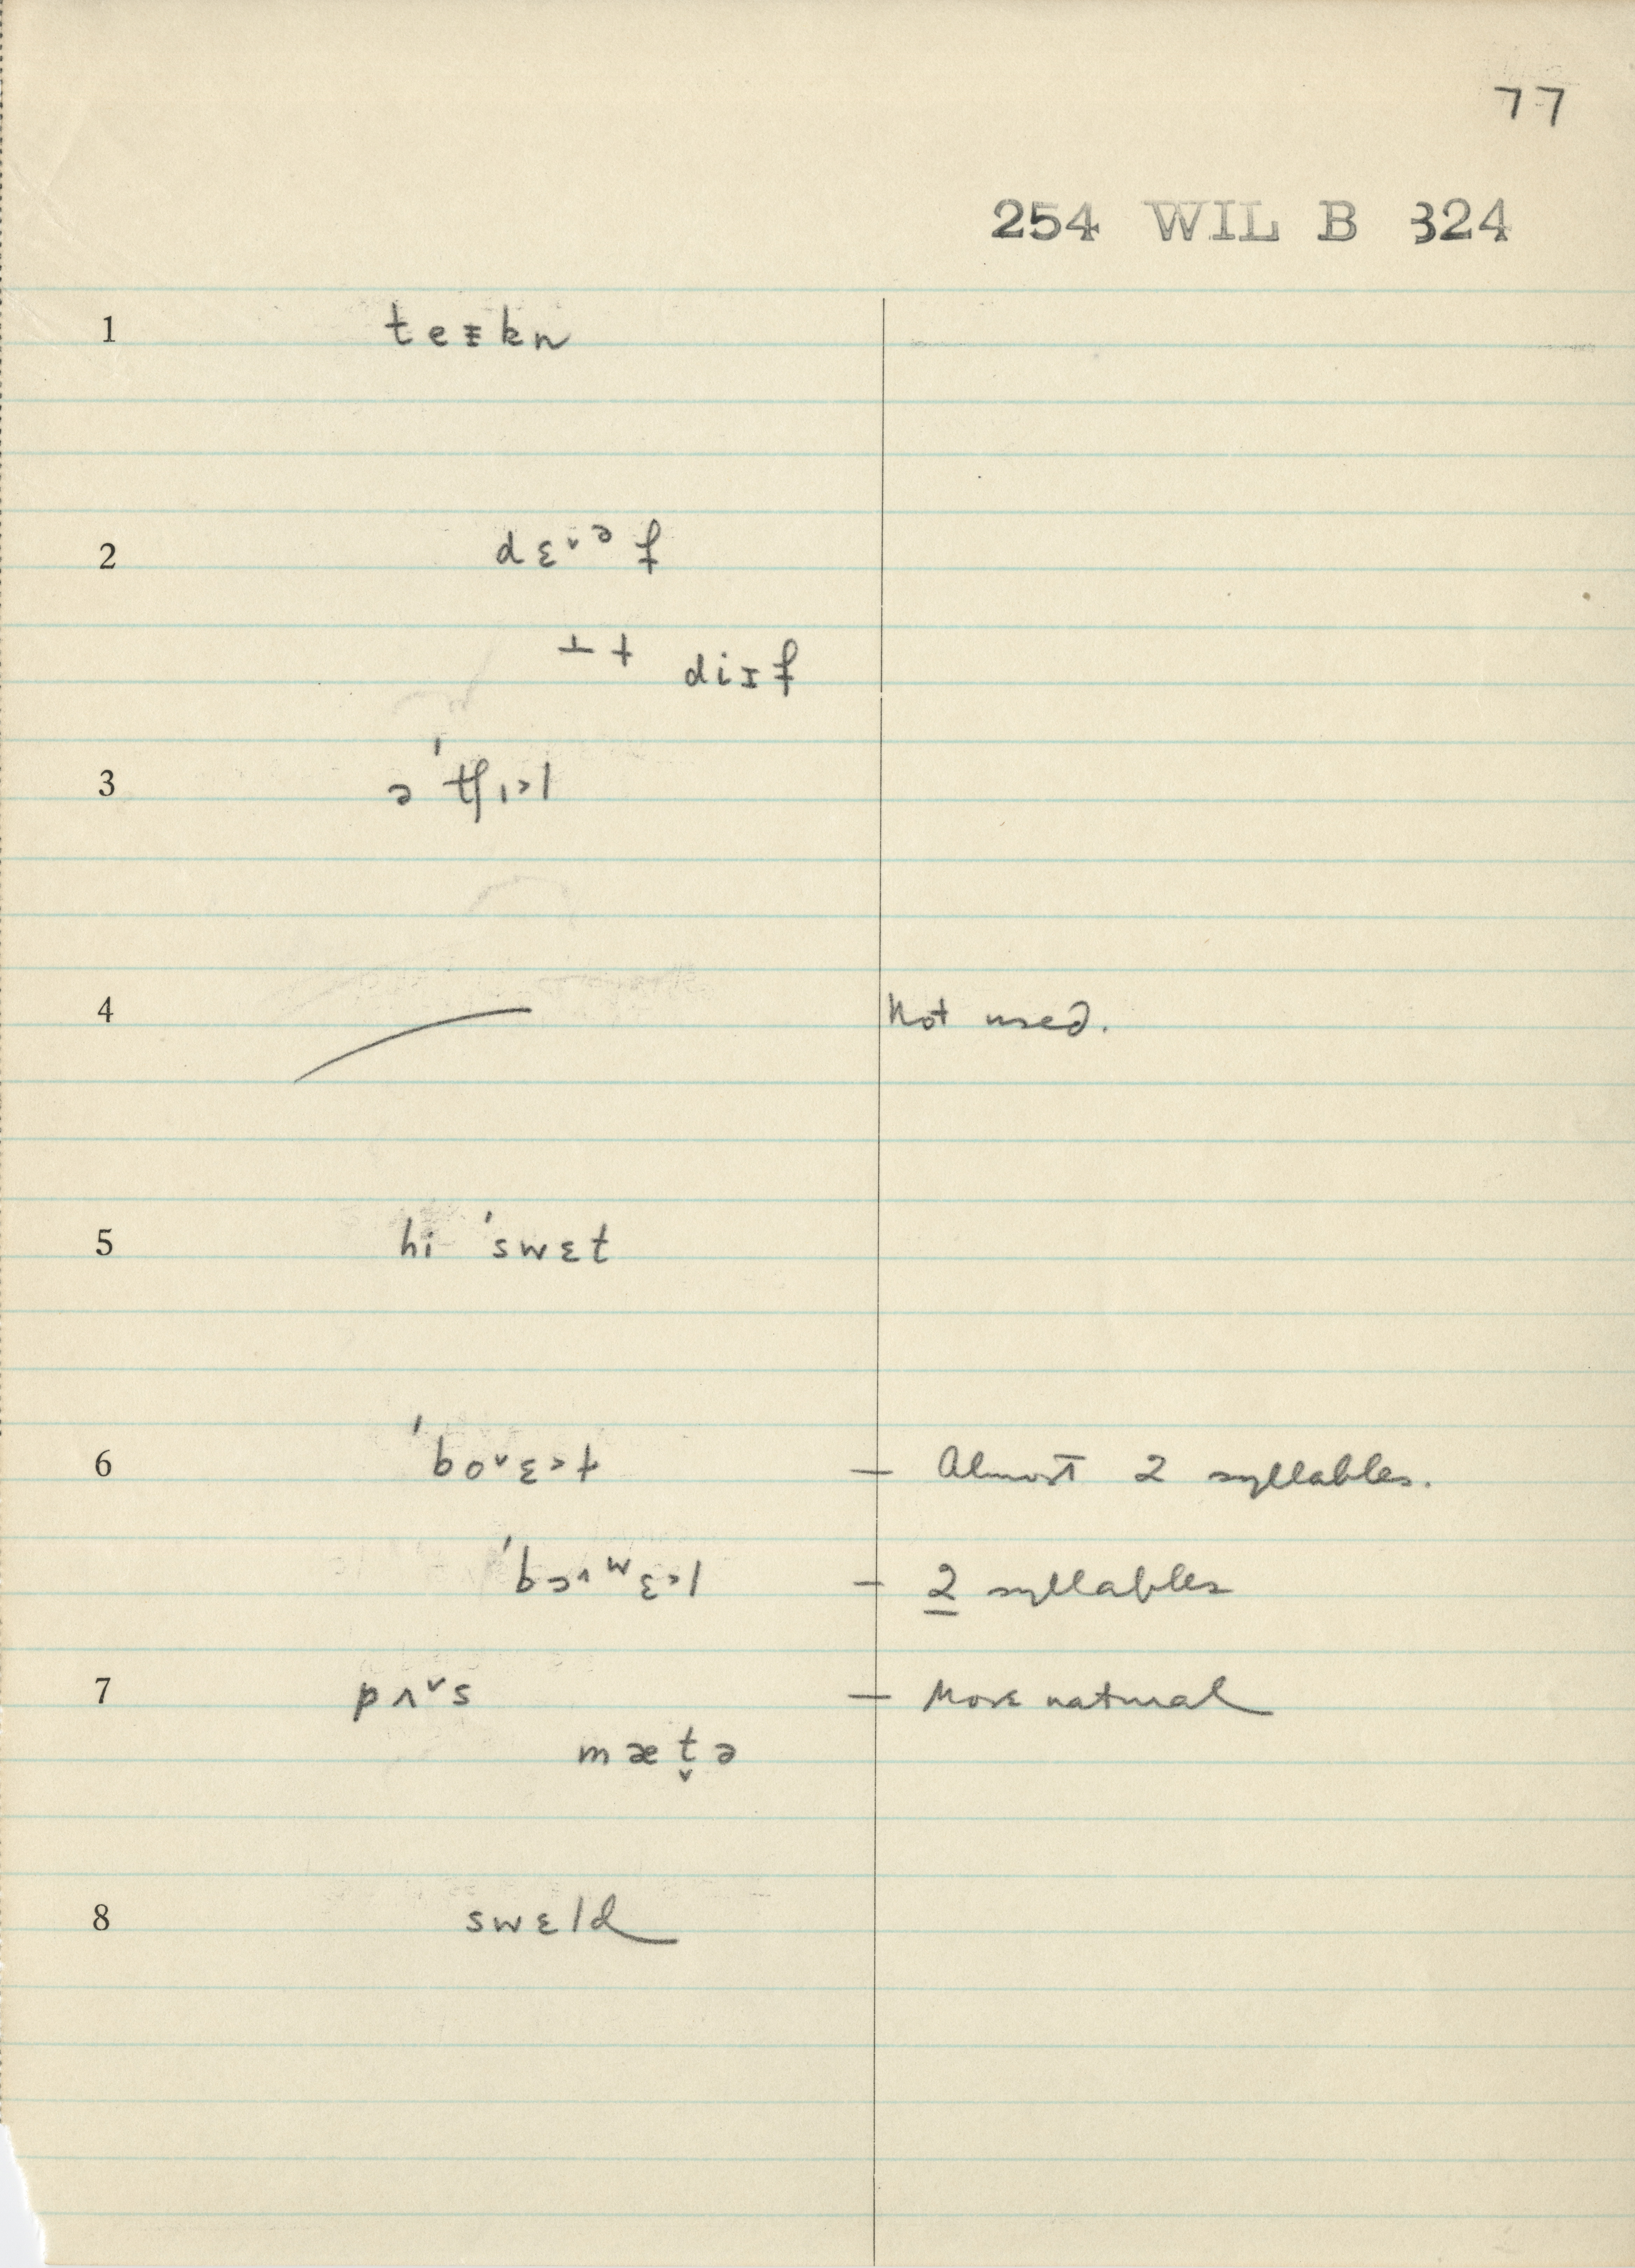 77
254 WIL B 324
1 teɪkn
2 dɛ˅ᵊf
⊥ + diɪf
3 ə 'tʃɪ>l
4 Not used.
5 hi 'swɛt
6 'bo˅ɛ>t — Almost 2 syllables.
'bɔ˄ʷɛ>l — 2 syllables
7 pʌ˅s — More natural
mæt̬ə
8 swɛld